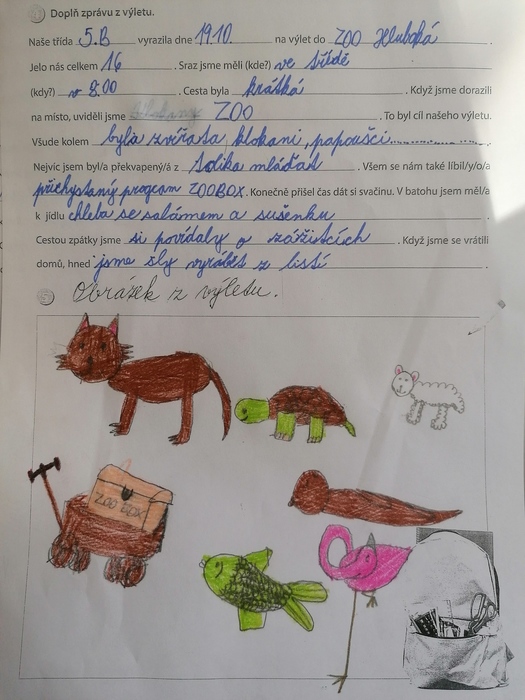 Doplň zprávu z výletu.
Naše třída 5.B vyrazila dne 19.10. na výlet do ZOO Hluboká
Jelo nás celkem 16 . Sraz jsme měli (kde?) ve třídě
(kdy?) v 8:00 . Cesta byla krátká . Když jsme dorazili
na místo, uviděli jsme ZOO . To byl cíl našeho výletu.
Všude kolem byla zvířata klokani, papoušci
Nejvíc jsem byl/a překvapený/á z tolika mláďat . Všem se nám také líbil/y/o/a
přichystaný program ZOOBOX. Konečně přišel čas dát si svačinu. V batohu jsem měl/a
k jídlu chleba se salámem a sušenku .
Cestou zpátky jsme si povídaly o zážitcích . Když jsme se vrátili
domů, hned jsme šly vyrábět z listí .
Obrázek z výletu.
ZOO BOX